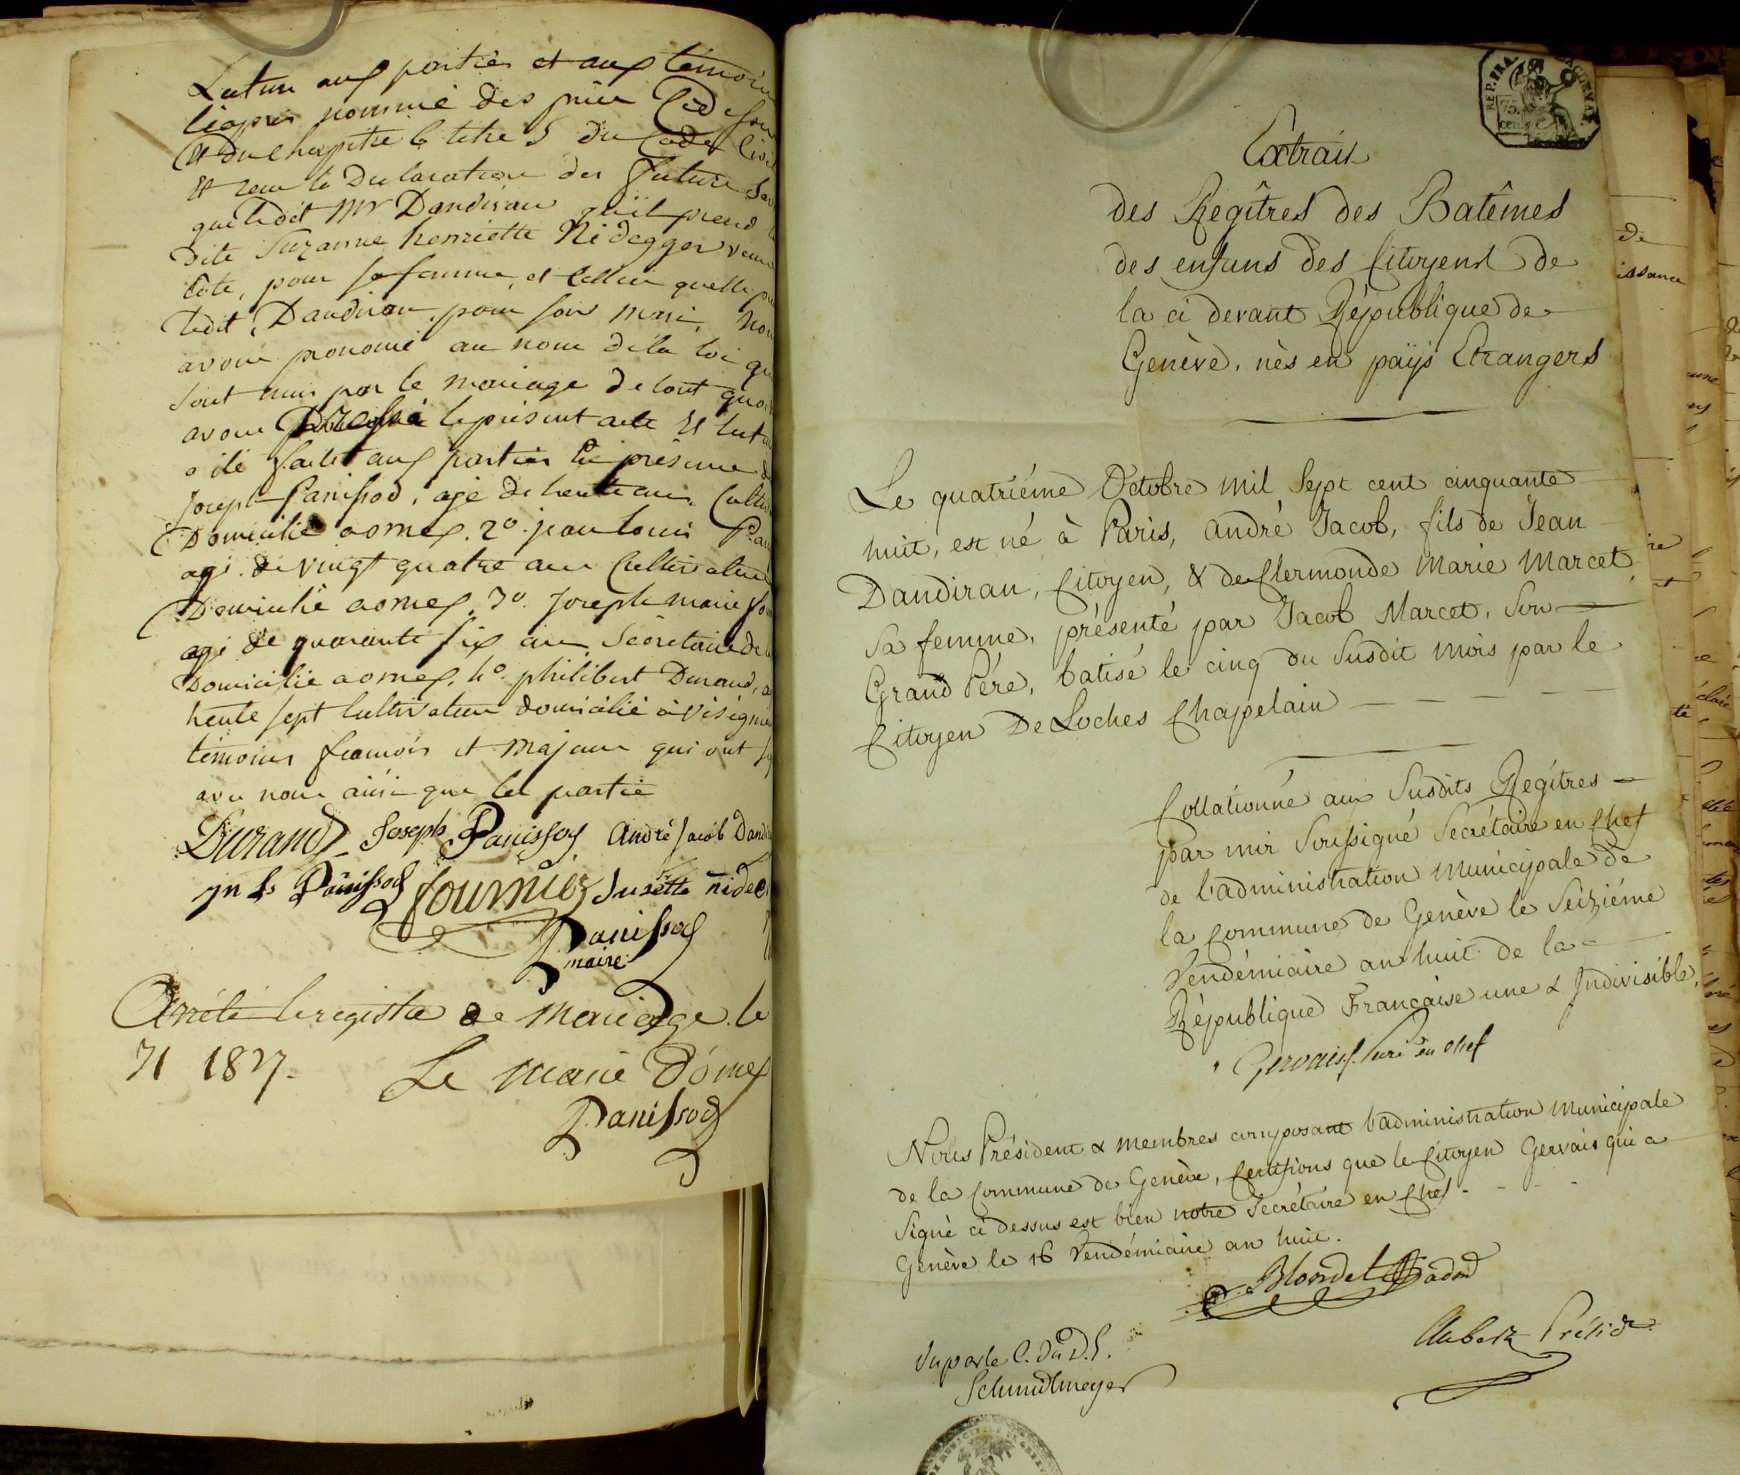 Lecture aux parties et aux témoins
ci après nommé des pièce
Et du chapitre 6 titre 5 du Code Civil
Et reçu la Declaration des Future
que ledit Mr Dandiran qu'il prend
dite Suzanne henriette Nidegger
Cote, pour sa femme, et celle quelle
ledit Dandiran, pour son mari, Nou
avons prononcé au nom de la loi qu
sont unis par le mariage de tout quoi
avons Dressé le présent acte Et
a été faite aux parties En présence
Joseph Panissod, agé de trente ans
Domicilié a omex. 2º. jean louis
agé de vingt quatre ans Cultivateur
Domicilié a omex. 3º. Joseph marie
agé de quarante six ans Sécretaire de
Domicilié a omex. 4º philibert Durand,
trente sept Cultivateur domicilié à
témoins francois et majeurs qui ont
avec nous ainsi que les partie
Durand Joseph Panissod André Jacob Dandi
jn Ls Panissod fournier Susette nide
Panissod
maire
Arrêté le registre de Mariage le
31 18
Le maire D'omex
Panissod
REP. FRA.
75.
cent.
Extrait
des Regîtres des Batêmes
des enfans des Citoyens de
la ci devant République de
Genève, nés en païs Etrangers
Le quatriéme Octobre mil Sept cent cinquante
huit, est né à Paris, André Jacob, fils de Jean
Dandiran, Citoyen, & de Clermonde Marie Marcet
Sa femme, présenté par Jacob Marcet, Son
Grand Pére, batisé le cinq du Susdit mois par le
Citoyen De Loches Chapelain
Collationné aux Susdits Regîtres
par moi Soussigné Secrétaire en Chef
de l'administration Municipale de
la Commune de Genève le Seiziéme
Vendémiaire an huit de la
République Française une & Indivisible,
Gervais Secre en chef
Nous Président & membres composant l'administration Municipale
de la Commune de Genève, Certifions que le Citoyen Gervais qui a
Signé ci dessus est bien notre Secrétaire en Chef.
Genève le 16 Vendémiaire an huit.
Blondel
Aubert Présidt.
Vu par le C. du D. E.
Schmidtmeyer